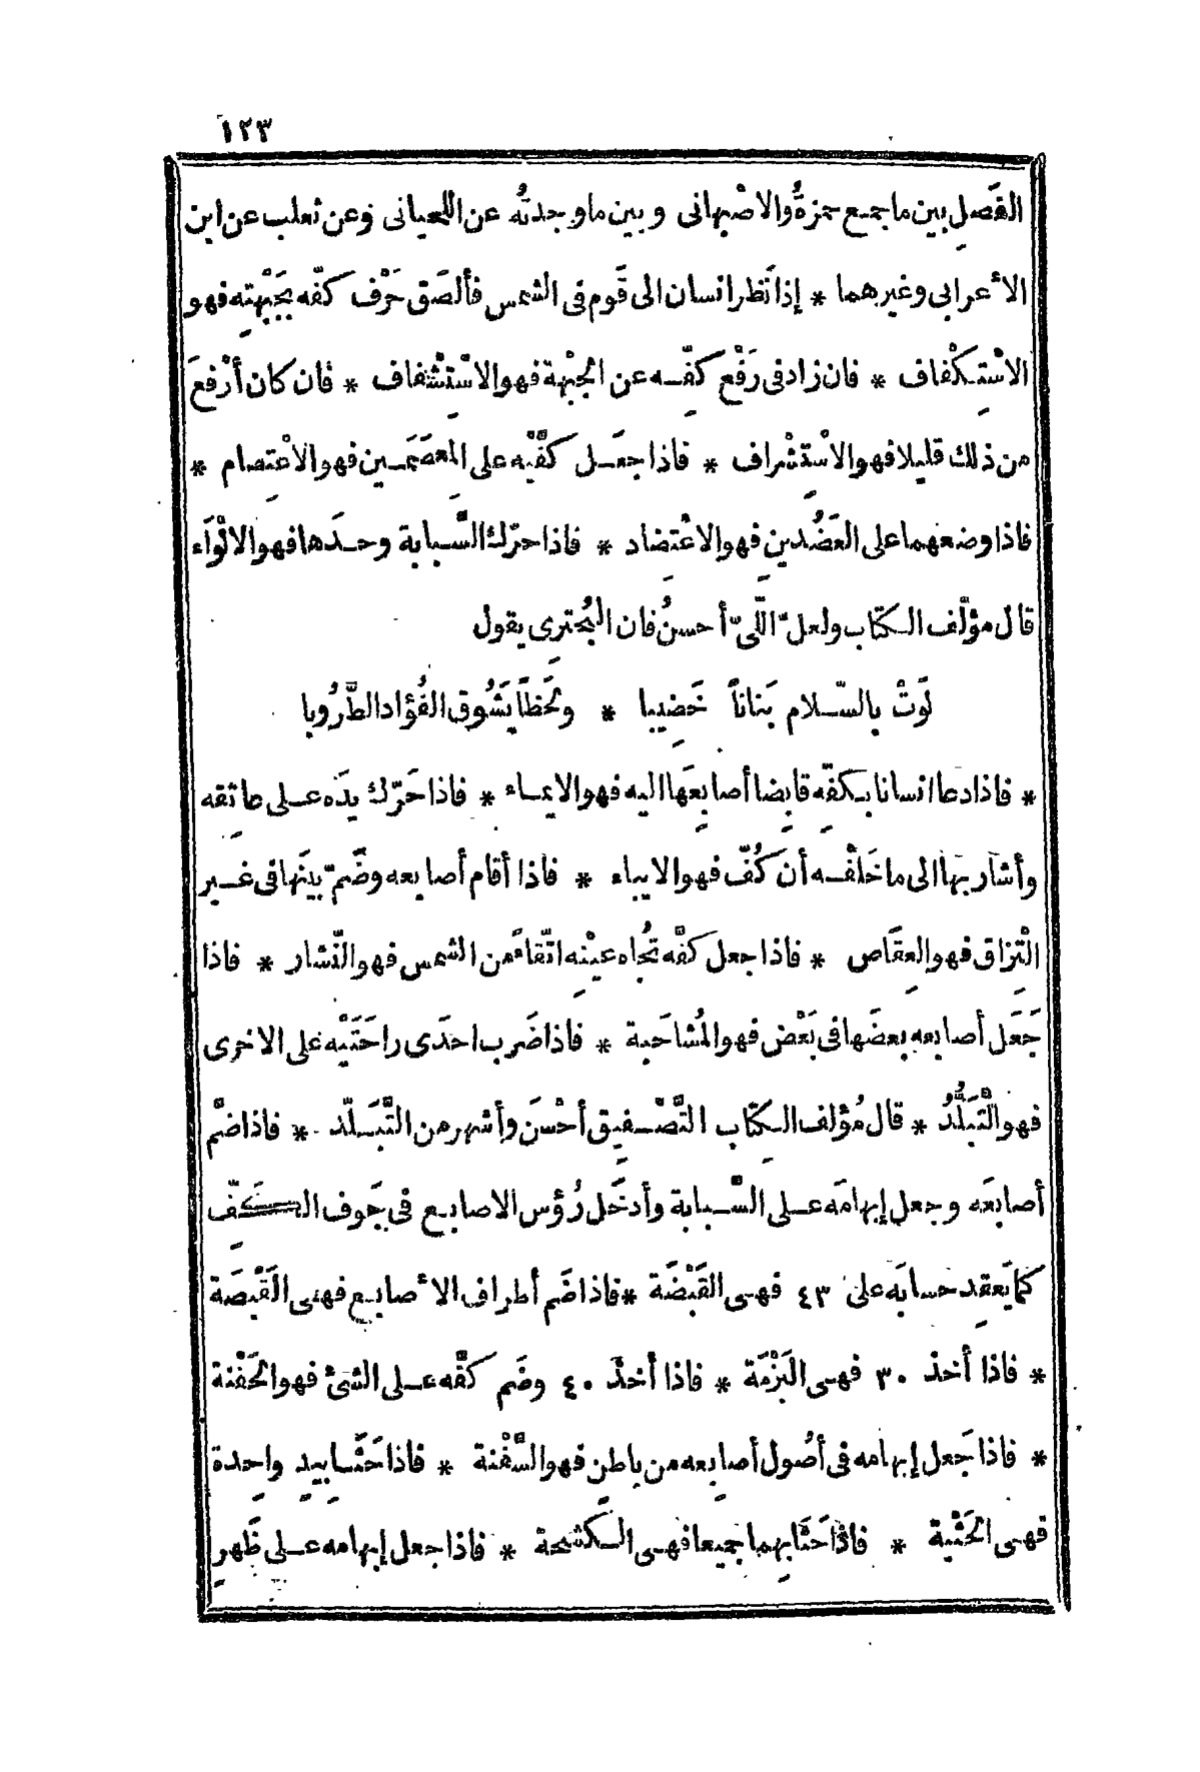 ١٢٣
الفَصلِ بين ما جمع حمزةُ والاصْبهانى وبين ما وجدتُه عن اللحيانى وعن ثعلب عن ابن
الأعرابى وغيرهما * إذا نَظر انسان الى قَوم فى الشمس فألصَق حَرْف كفّه بجَبْهتِه فهو
الاسْتِكْفاف * فان زاد فى رَفْع كفّـه عن الجَبْهة فهو الاسْتِشْفاف * فان كان أرْفعَ
من ذلك قليلا فهو الاسْتِشْراف * فاذا جعَـل كفَّيْه على المعصَمـين فهو الاعْتِصام *
فاذا وضعهما على العَضُدينِ فهو الاعْتِضاد * فاذا حرّك السَّـبابة وحـدَها فهو الالْوَاء
قال مؤلّف الكتاب ولعلّ اللَّىّ أحسنُ فان البُحْترِى يقول
لَوَتْ بالسّـلام بَناناً خَضِيبا * ولَحْظاً يَشُوق الفُؤاد الطَّرُوبا
* فاذا دعا انسانا بكفِّه قابِضا أصابِعَها اليه فهو الايماء * فاذا حَرّك يدَه عـلى عاتقِه
وأشار بها الى ما خَلْفـه أن كُفّ فهو الايباء * فاذا أقام أصابعه وضَمّ بينَها فى غـير
الْتِزاق فهو العِقَاص * فاذا جعل كفَّه تُجاه عيْنِه اتّقاءً من الشمس فهو النّشار * فاذا
جَعَل أصابعه بعضَها فى بَعْض فهو المُشاحَبة * فاذا ضَرب احدَى راحَتَيْه على الاخرى
فهو التَّبَلُّدُ * قال مُؤلف الكِتّاب التَّصْـفِيق أحْسَن وأشهر من التَّبَـلّد * فاذا ضَمَّ
أصابعَه وجعل إبهامَه عـلى السَّـبابة وأدخَل رُؤس الاصابـع فى جَوف الكَفِّ
كما يَعقِد حسابَه على ٤٣ فهـى القَبْضَة * فاذا ضَم أطراف الأصابـع فهى القَبْصَة
* فاذا أخذ ٣٠ فهـى البَزْمَة * فاذا أخذ ٤٠ وضَم كفَّه عـلى الشئ فهو الحَفْنة
* فاذا جَعل إبهامه فى أصُول أصابِعه من باطنٍ فهو السَّفْنة * فاذا حَثَـا بيدٍ واحِدة
فهـى الحَثْية * فاذا حَثَا بهِما جميعا فهـى الـكَشحة * فاذا جعل إبهامه عـلى ظَهرِ